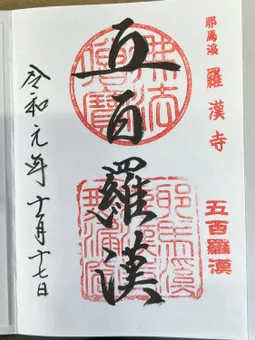 耶馬溪 羅漢寺
五百羅漢
五百羅漢
令和元年十一月十七日